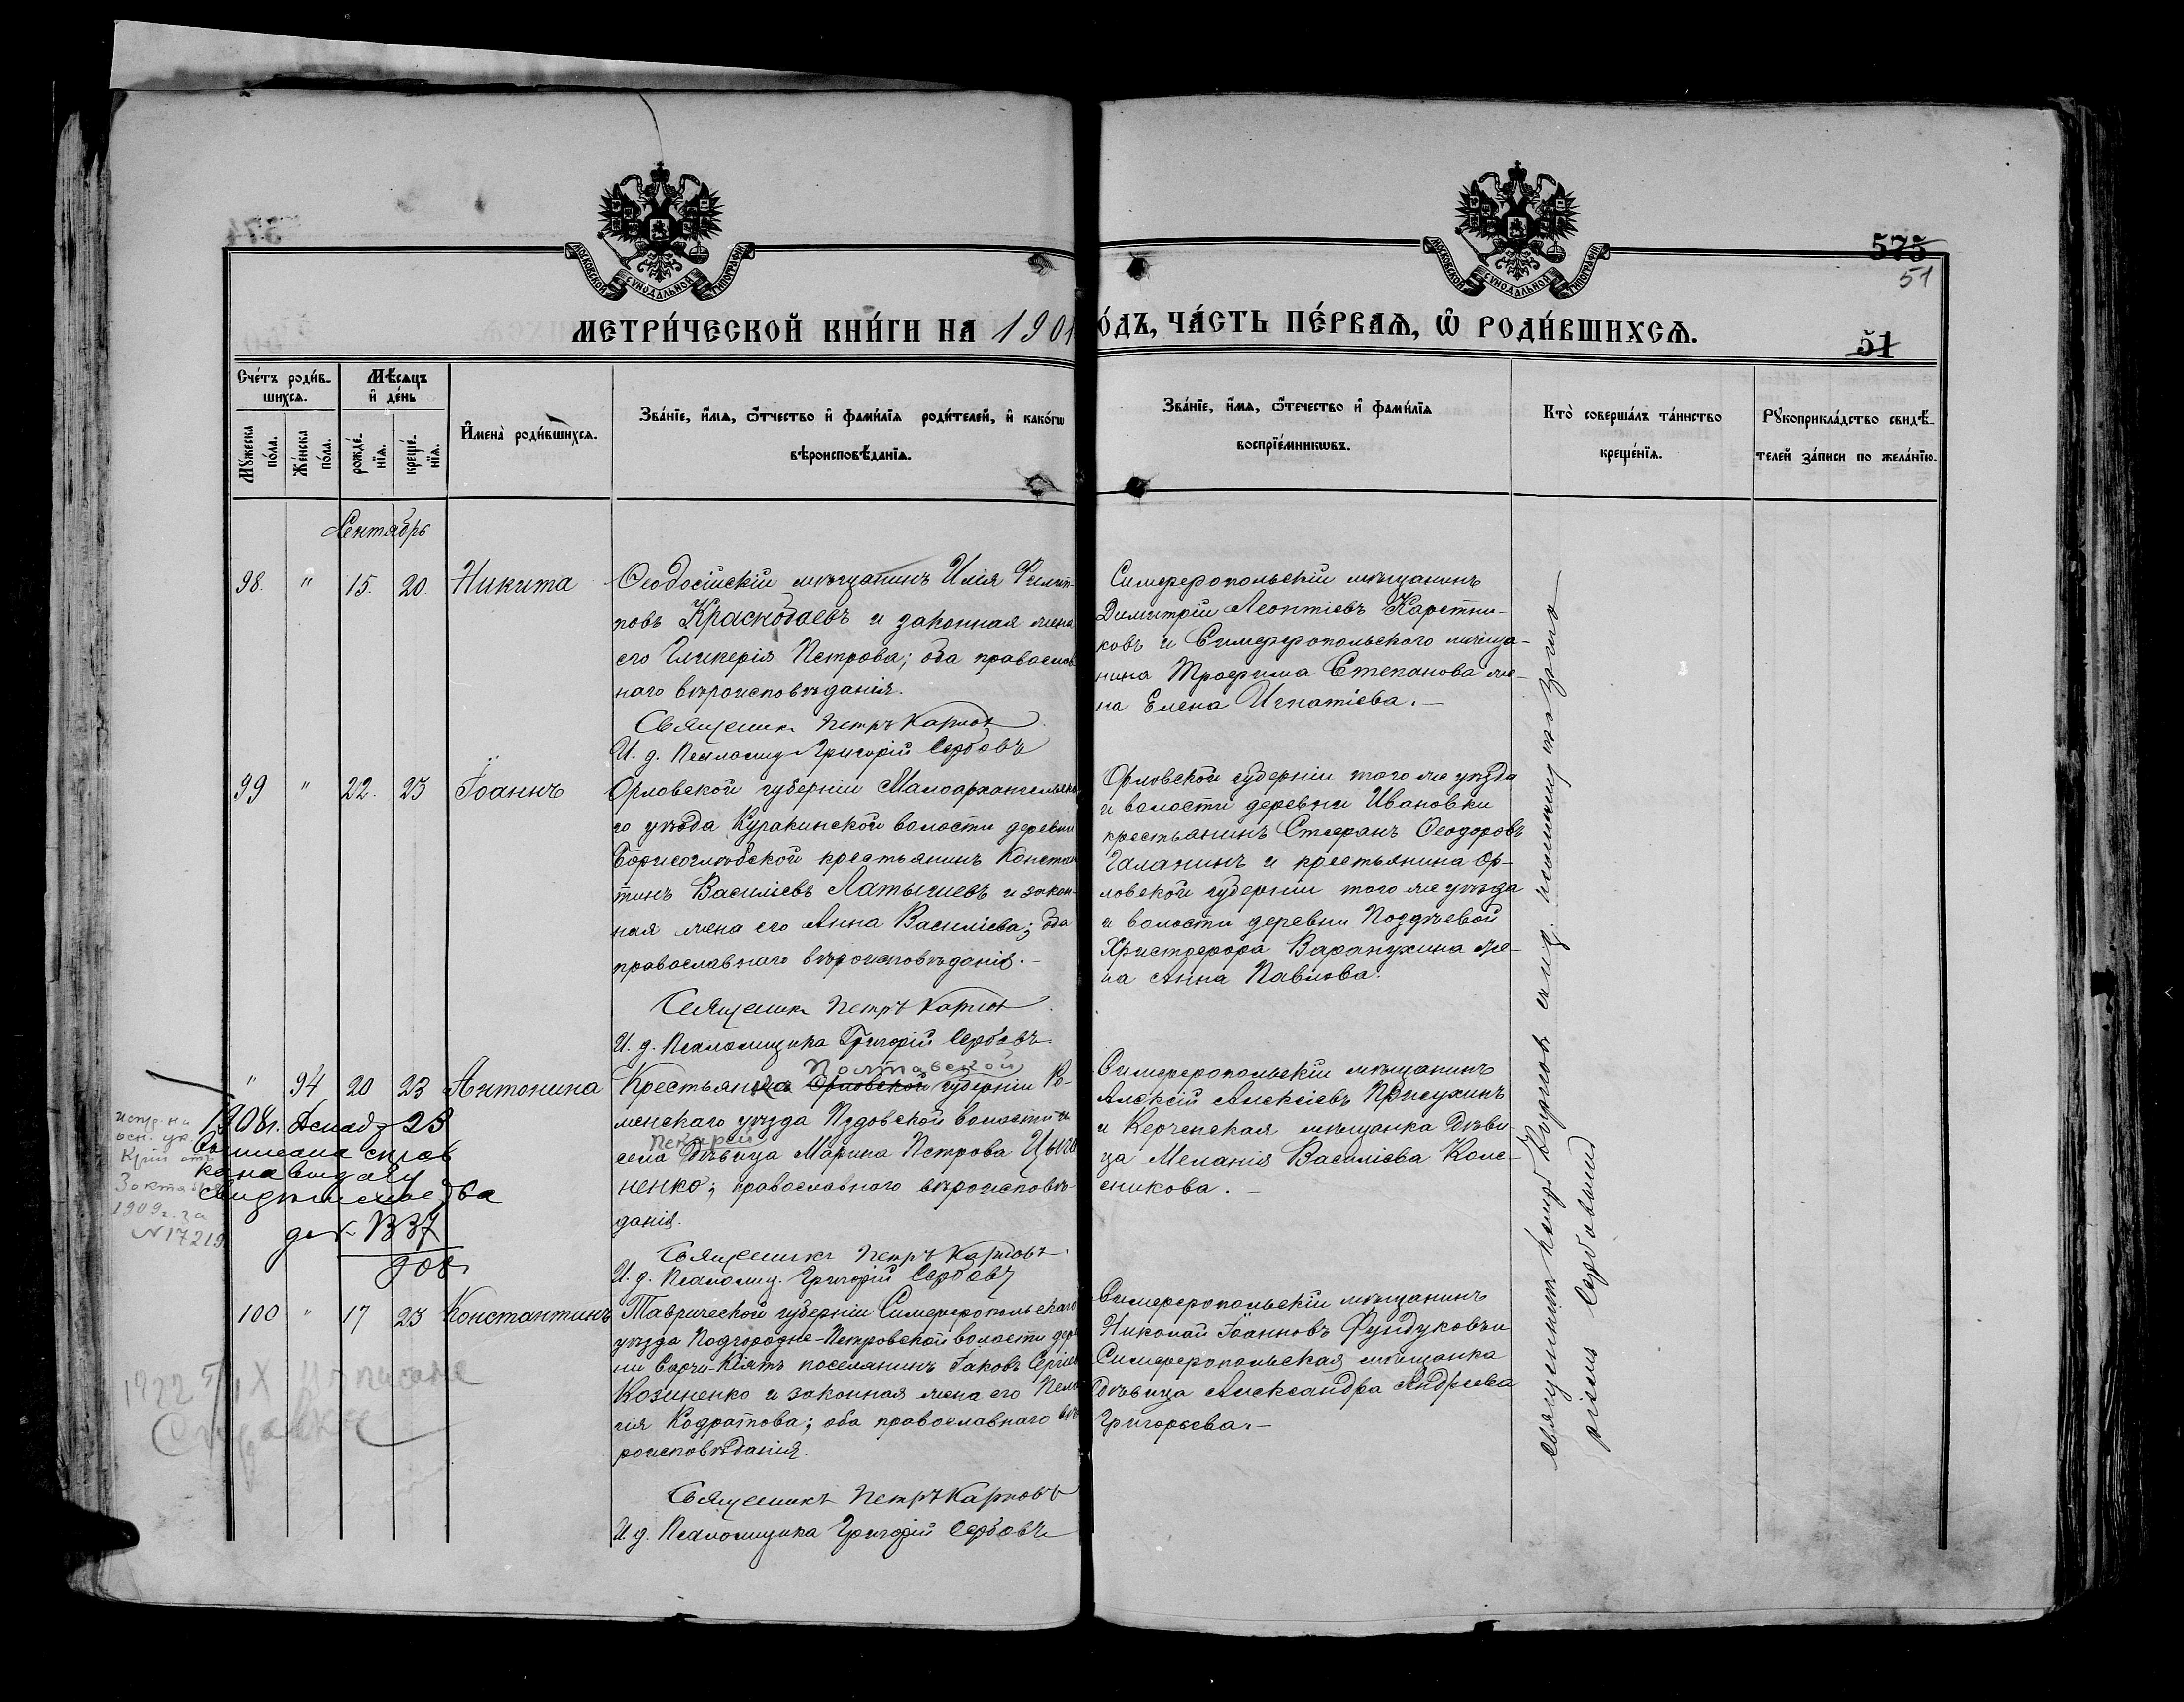 МОСКОВСКОЙ СѴНОДАЛЬНОЙ ТИПОГРАФІИ
МОСКОВСКОЙ СѴНОДАЛЬНОЙ ТИПОГРАФІИ
575
51
МЕТРИ́ЧЕСКОЙ КНИ́ГИ НА 1901
О́ДЪ, ЧА́СТЬ ПЕ́РВАѦ, Ѽ РОДИ́ВШИХСѦ.
51
Сче́тъ роди́в-
шихсѧ.
Мѣ́сѧцъ
и҆ де́нь
Мꙋ́жеска по́ла.
Же́нска по́ла.
рожде́-
нїѧ.
креще́-
нїѧ.
И҆мена̀ роди́вшихсѧ.
Зва́нїе, и҆́мѧ, ѻ҆́тчество и҆ фами́лїѧ роди́телей, и҆ како́гѡ
вѣроисповѣ́данїѧ.
Зва́нїе, и҆́мѧ, ѻ҆́течество и҆ фами́лїѧ
воспрїе́мникѡвъ.
Кто̀ соверша́лъ та́инство
креще́нїѧ.
Рꙋкоприкла́дство свидѣ́-
телей за́писи по жела́нїю.
Сентябрь
98. " 15. 20. Никита
Ѳеодосійскій мѣщанинъ Илія Филип-
повъ Краснобаевъ и законная жена
его Гликерія Петрова; оба православ
наго вѣроисповѣданія.
Священникъ Петръ Карпов
И. д. Псаломщ. Григорій Сербовъ
Симферопольскій мѣщанинъ
Димитрій Леонтіевъ Каретни-
ковъ и Симферопольского мѣща-
нина Трофима Степанова же-
на Елена Игнатіева.—
99 " 22. 23 Іоаннъ
Орловской губерніи Малоархангельска
го уѣзда Куракинской волости деревни
Борисоглѣбской крестьянинъ Констан
тинъ Василіевъ Латышевъ и закон-
ная жена его Анна Василіева; оба
православнаго вѣроисповѣданія.—
Священник Петръ Карпов
И. д. Псаломщика Григорій Сербовъ
Орловской губерніи того же уѣзда
и волости деревни Ивановки
крестьянинъ Стефанъ Ѳеодоровъ
Галанинъ и крестьянина Ор-
ловской губерніи того же уѣзда
и волости деревни Поздѣевой
Христофора Варанухина же-
на Анна Павлова.
" 94 20 23 Антонина
Полтавской
Крестьянка Орловской губерніи Ро-
менскаго уѣзда Пудовской волости и
Пекарей
села Дѣвица Марина Петрова Цыга
ненко; православного вѣроисповѣ-
данія.
Священникъ Петръ Карповъ
И. д. Псаломщ. Григорій Сербовъ
Симферопольскій мѣщанинъ
Алексій Алексіевъ Присухинъ
и Керченская мѣщанка Дѣви-
ца Меланія Василіева Коле-
сникова.—
1908г. 23
1909г. за
N17219
100 " 17 23 Константинъ
Таврической губерніи Симферопольскаго
уѣзда Подгородне-Петровской волости дерев
ни Кіятъ поселянинъ Іаковъ Сергіев
Козиненко и законная жена его Пела
гія Кодратова; оба православнаго вѣ
роисповѣданія.
Священникъ Петръ Карповъ
И. д. Псаломщика Григорій Сербовъ
Симферопольскій мѣщанинъ
Николай Іоанновъ Фундуковъ и
Симферопольская мѣщанка
дѣвица Александра Андреева
Григорьева.—
1922
Справка
Священникъ Петръ Карповъ съ и. д. псаломщика
Сербовымъ